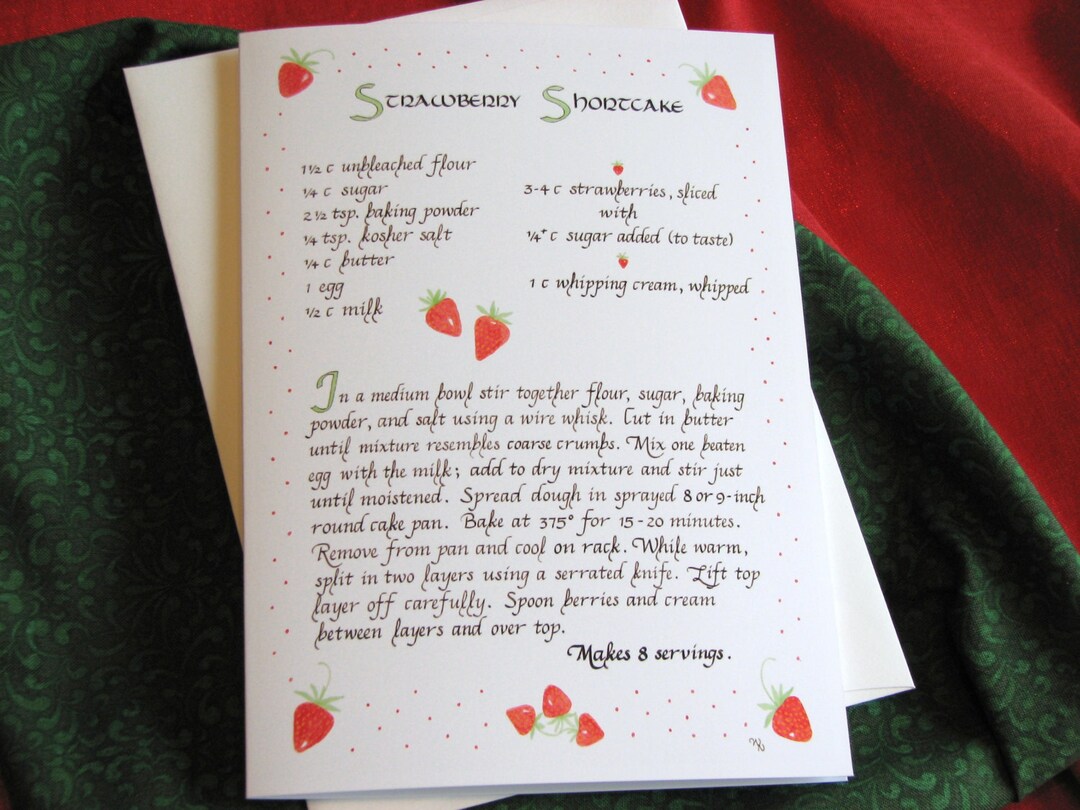 Strawberry Shortcake
1 1/2 c unbleached flour
1/4 c sugar
2 1/2 tsp. baking powder
1/4 tsp. kosher salt
1/4 c butter
1 egg
1/2 c milk
3-4 c strawberries, sliced
with
1/4+ c sugar added (to taste)
1 c whipping cream, whipped
In a medium bowl stir together flour, sugar, baking
powder, and salt using a wire whisk. Cut in butter
until mixture resembles coarse crumbs. Mix one beaten
egg with the milk; add to dry mixture and stir just
until moistened. Spread dough in sprayed 8 or 9-inch
round cake pan. Bake at 375° for 15-20 minutes.
Remove from pan and cool on rack. While warm,
split in two layers using a serrated knife. Lift top
layer off carefully. Spoon berries and cream
between layers and over top.
Makes 8 servings.